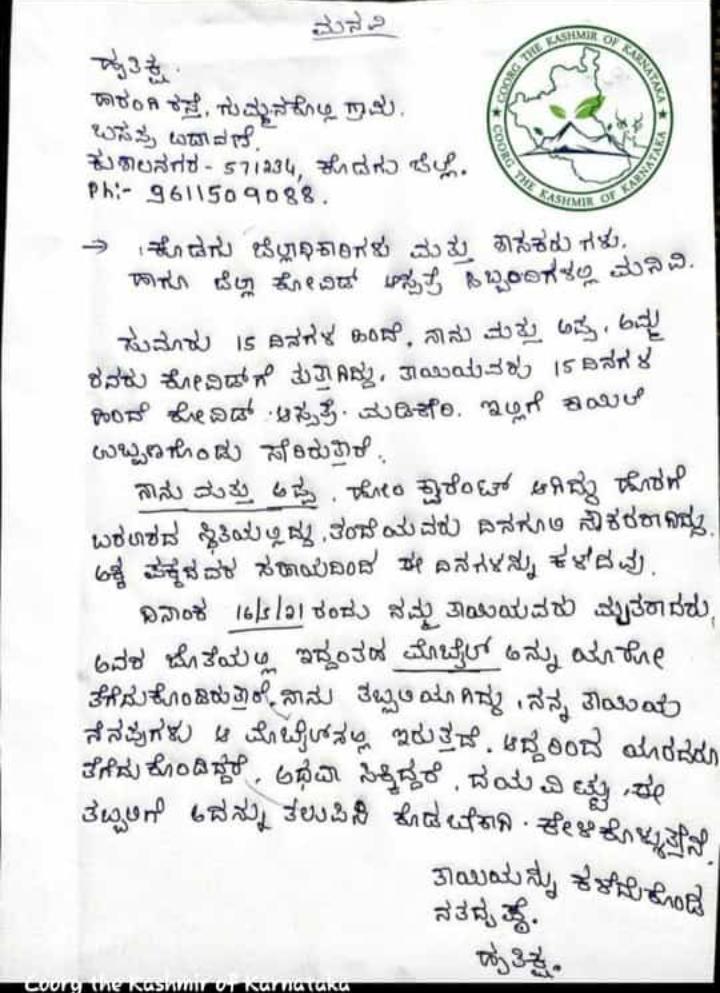 ಮನವಿ
ಹೃತಿಕ್ಷ.
ಹಾರಂಗಿ ರಸ್ತೆ, ಗುಮ್ಮನಕೊಲ್ಲಿ ಗ್ರಾಮ.
ಬಸಪ್ಪ ಬಡಾವಣೆ.
ಕುಶಾಲನಗರ - 571234, ಕೊಡಗು ಜಿಲ್ಲೆ.
Ph:- 9611509088.
COORG THE KASHMIR OF KARNATAKA
COORG THE KASHMIR OF KARNATAKA
→ ಕೊಡಗು ಜಿಲ್ಲಾಧಿಕಾರಿಗಳು ಮತ್ತು ಶಾಸಕರುಗಳು.
ಹಾಗೂ ಜಿಲ್ಲಾ ಕೋವಿಡ್ ಆಸ್ಪತ್ರೆ ಸಿಬ್ಬಂದಿಗಳಲ್ಲಿ ಮನಿವಿ.
ಸುಮಾರು 15 ದಿನಗಳ ಹಿಂದೆ, ನಾನು ಮತ್ತು ಅಪ್ಪ, ಅಮ್ಮ
ರವರು ಕೋವಿಡ್‌ಗೆ ತುತ್ತಾಗಿದ್ದು, ತಾಯಿಯವರು 15 ದಿನಗಳ
ಹಿಂದೆ ಕೋವಿಡ್ ಆಸ್ಪತ್ರೆ. ಮಡಿಕೇರಿ. ಇಲ್ಲಿಗೆ ಕಾಯಿಲೆ
ಉಲ್ಬಣಗೊಂಡು ಸೇರಿರುತ್ತಾರೆ.
ನಾನು ಮತ್ತು ಅಪ್ಪ, ಹೋಂ ಕ್ವಾರೆಂಟ್ ಆಗಿದ್ದು ಹೊರಗೆ
ಬರಲಾರದ ಸ್ಥಿತಿಯಲ್ಲಿದ್ದು, ತಂದೆಯವರು ದಿನಗೂಲಿ ನೌಕರರಾಗಿದ್ದು.
ಅಕ್ಕ ಪಕ್ಕದವರ ಸಹಾಯದಿಂದ ಈ ದಿನಗಳನ್ನು ಕಳೆದವು.
ದಿನಾಂಕ 16/5/21 ರಂದು ನಮ್ಮ ತಾಯಿಯವರು ಮೃತರಾದರು,
ಅವರ ಜೊತೆಯಲ್ಲಿ ಇದ್ದಂತಹ ಮೊಬೈಲ್ ಅನ್ನು ಯಾರೋ
ತೆಗೆದುಕೊಂಡಿರುತ್ತಾರೆ. ನಾನು ತಬ್ಬಲಿಯಾಗಿದ್ದು, ನನ್ನ ತಾಯಿಯ
ನೆನಪುಗಳು ಆ ಮೊಬೈಲ್‌ನಲ್ಲಿ ಇರುತ್ತದೆ. ಆದ್ದರಿಂದ ಯಾರಾದರೂ
ತೆಗೆದುಕೊಂಡಿದ್ದರೆ, ಅಥವಾ ಸಿಕ್ಕಿದ್ದರೆ, ದಯವಿಟ್ಟು ಈ
ತಬ್ಬಲಿಗೆ ಅದನ್ನು ತಲುಪಿಸಿ ಕೊಡಬೇಕಾಗಿ. ಕೇಳಿಕೊಳ್ಳುತ್ತೇನೆ.
ತಾಯಿಯನ್ನು ಕಳೆದುಕೊಂಡ
ನತದೃಷ್ಟೆ.
ಹೃತಿಕ್ಷ.
Coorg the Kashmir of Karnataka